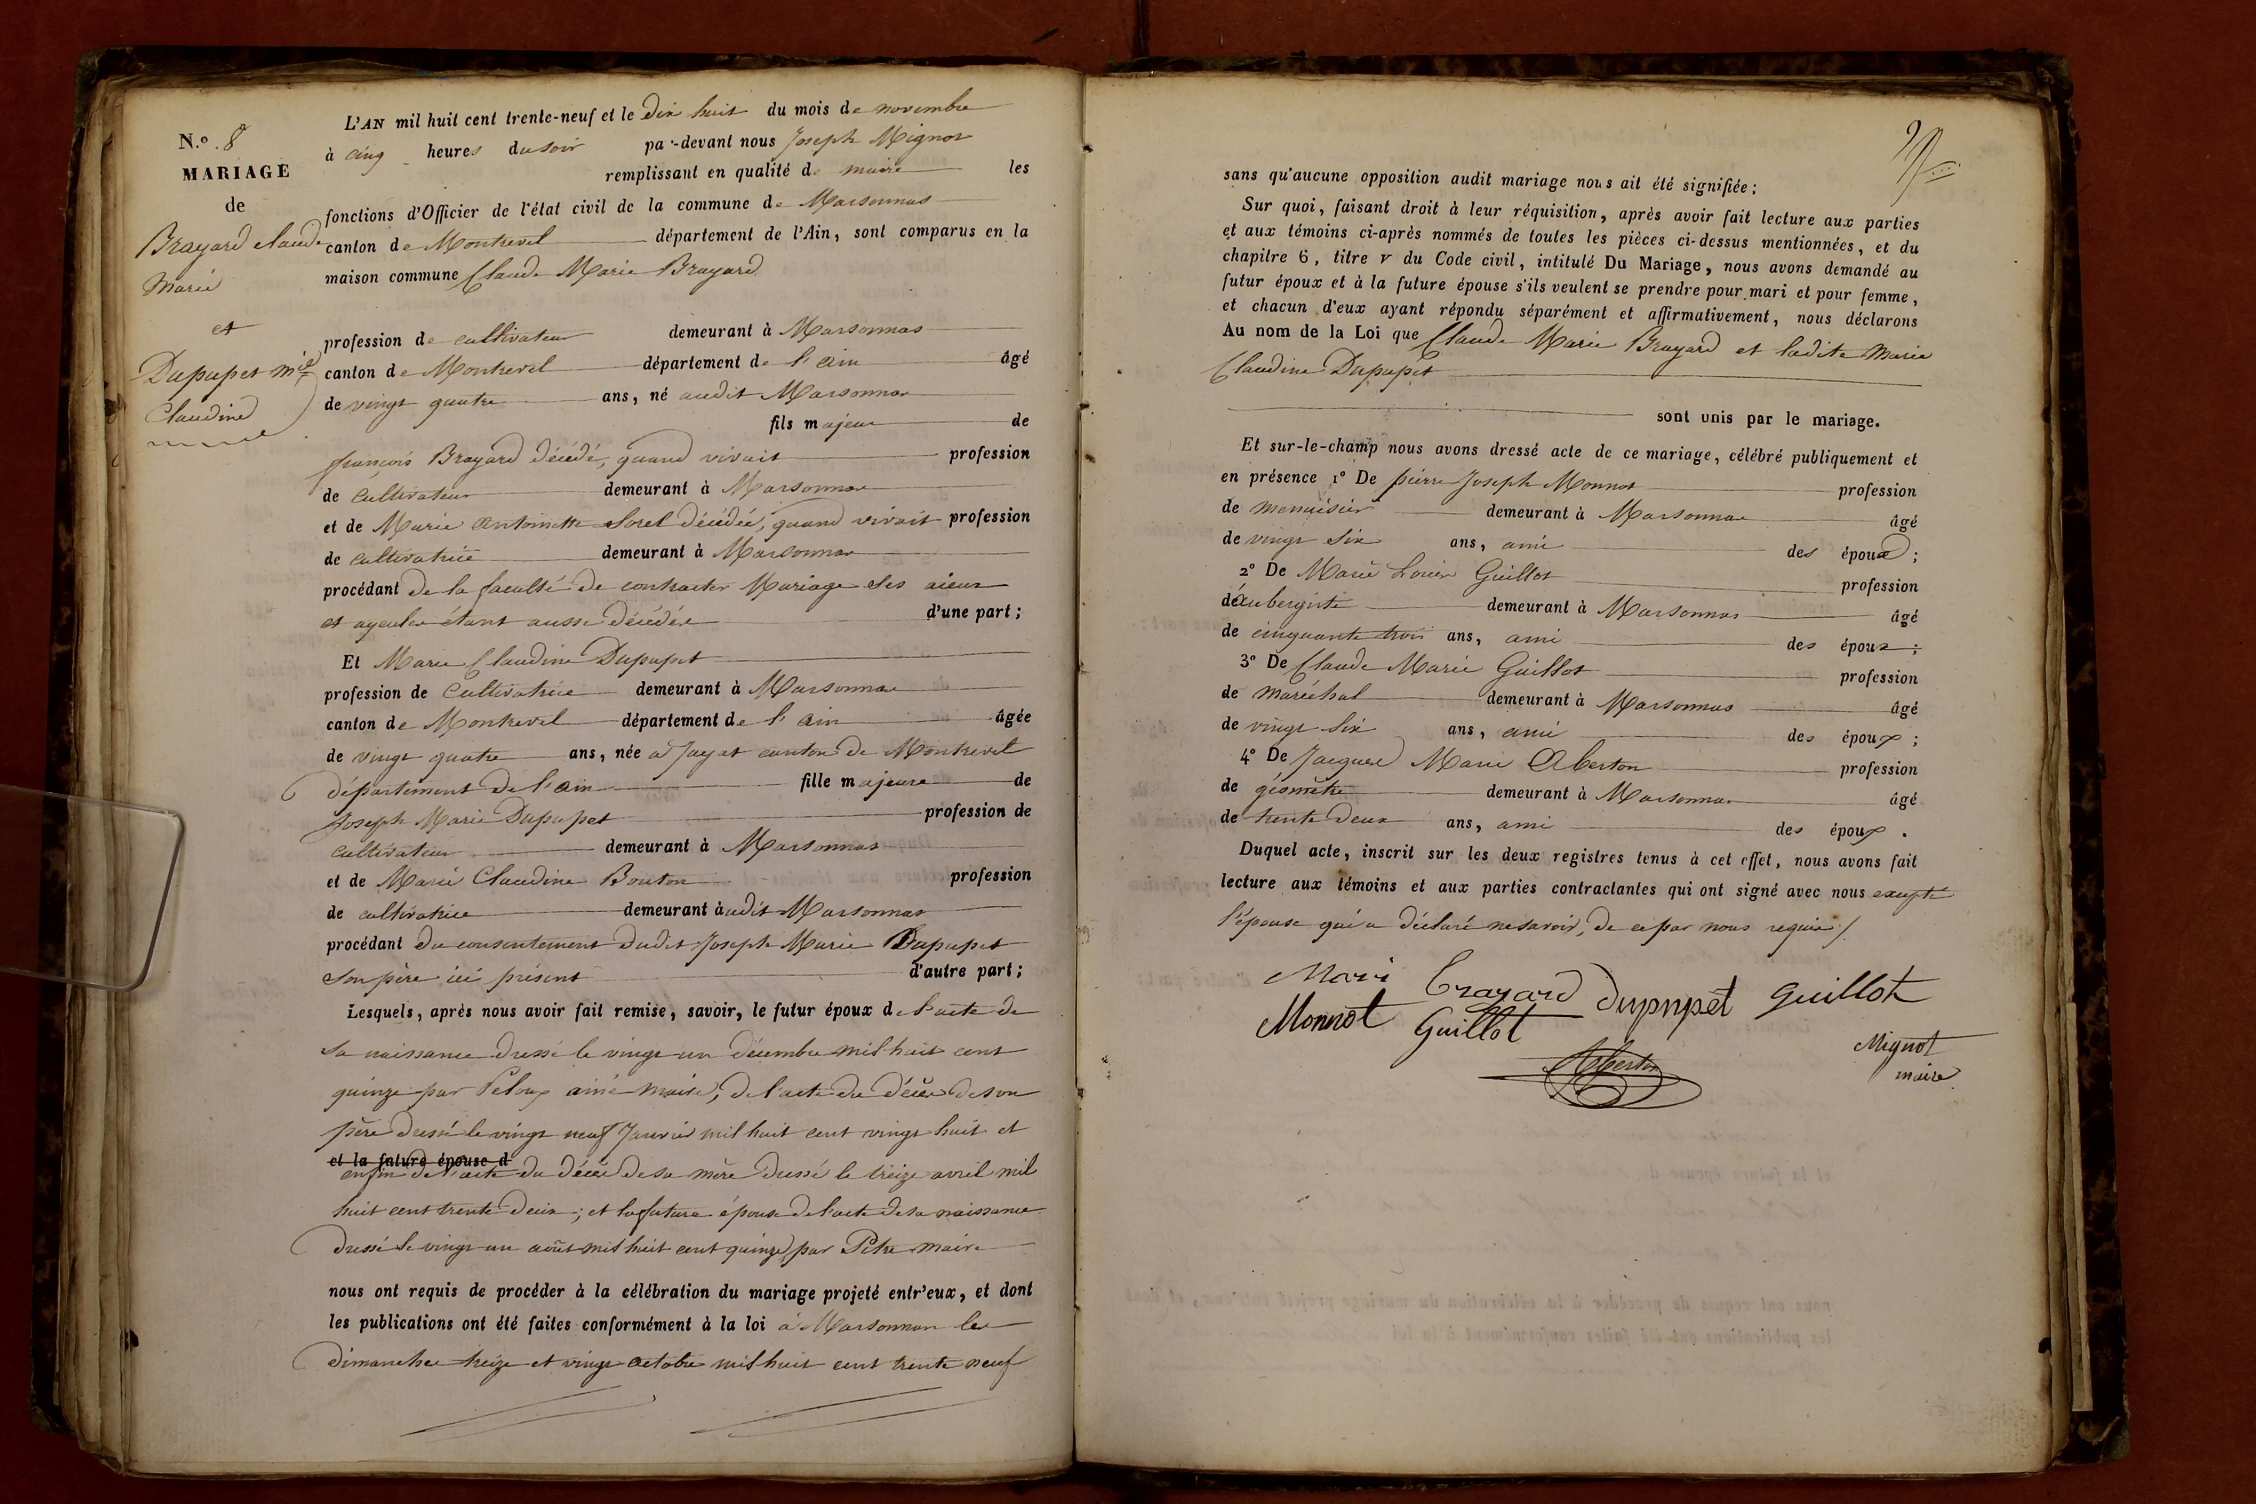 N.o 8
MARIAGE
de
Brayard claude
Marie
et
Dupupet mie
Claudine
L'AN mil huit cent trente-neuf et le dix huit du mois de novembre
à cinq heures du soir pa -devant nous Joseph Mignot
remplissant en qualité de maire les
fonctions d'Officier de l'état civil de la commune de Marsonnas
canton de Montrevel département de l'Ain, sont comparus en la
maison commune Claude Marie Brayard
profession de cultivateur demeurant à Marsonnas
canton de Montrevel département de l'ain âgé
de vingt quatre ans, né audit Marsonnas
fils majeur de
françois Brayard décédé, quand vivait profession
de cultivateur demeurant à Marsonnas
et de Marie antoinette Sorel décédée, quand vivait profession
de cultivatrice demeurant à Marsonnas
procédant de la faculté de contracter Mariage ses aieux
et ayeules étant aussi décédés d'une part;
Et Marie Claudine Dupupet
profession de cultivatrice demeurant à Marsonnas
canton de Montrevel département de l'ain âgée
de vingt quatre ans, née à Jayat canton de Montrevel
département de l'ain fille majeure de
Joseph Marie Dupupet profession de
cultivateur demeurant à Marsonnas
et de Marie Claudine Bouton profession
de cultivatrice demeurant audit Marsonnas
procédant du consentement dudit Joseph Marie Dupupet
son père ici présent d'autre part;
Lesquels, après nous avoir fait remise, savoir, le futur époux de l'acte de
sa naissance dressé le vingt un décembre mil huit cent
quinze par Peloux ainé maire, de l'acte du décès de son
père dressé le vingt neuf Janvier mil huit cent vingt huit et
et la future épouse d
enfin de l'acte du décès de sa mère dressé le treize avril mil
huit cent trente deux; et la future épouse de l'acte de sa naissance
dressé le vingt un août mil huit cent quinze par Petre maire
nous ont requis de procéder à la célébration du mariage projeté entr'eux, et dont
les publications ont été faites conformément à la loi à Marsonnas les
dimanches treize et vingt octobre mil huit cent trente neuf
sans qu'aucune opposition audit mariage nous ait été signifiée;
Sur quoi, faisant droit à leur réquisition, après avoir fait lecture aux parties
et aux témoins ci-après nommés de toutes les pièces ci-dessus mentionnées, et du
chapitre 6, titre v du Code civil, intitulé Du Mariage, nous avons demandé au
futur époux et à la future épouse s'ils veulent se prendre pour mari et pour femme,
et chacun d'eux ayant répondu séparément et affirmativement, nous déclarons
Au nom de la Loi que Claude Marie Brayard et ladite Marie
Claudine Dupupet
sont unis par le mariage.
Et sur-le-champ nous avons dressé acte de ce mariage, célébré publiquement et
en présence 1º De pierre Joseph Monnot profession
de menuisier demeurant à Marsonnas âgé
de vingt six ans, ami des époux;
2º De Marie Louis Guillot profession
de aubergiste demeurant à Marsonnas âgé
de cinquante trois ans, ami des époux;
3º De Claude Marie Guillot profession
de maréchal demeurant à Marsonnas âgé
de vingt six ans, ami des époux;
4º De Jacques Marie Alberton profession
de géomètre demeurant à Marsonnas âgé
de trente deux ans, ami des époux.
Duquel acte, inscrit sur les deux registres tenus à cet effet, nous avons fait
lecture aux témoins et aux parties contractantes qui ont signé avec nous excepté
l'épouse qui a déclaré ne savoir, de ce par nous requise/.
Mari Brayard Dupupet Guillot
Monnot Guillot
Mignot
Alberton
maire